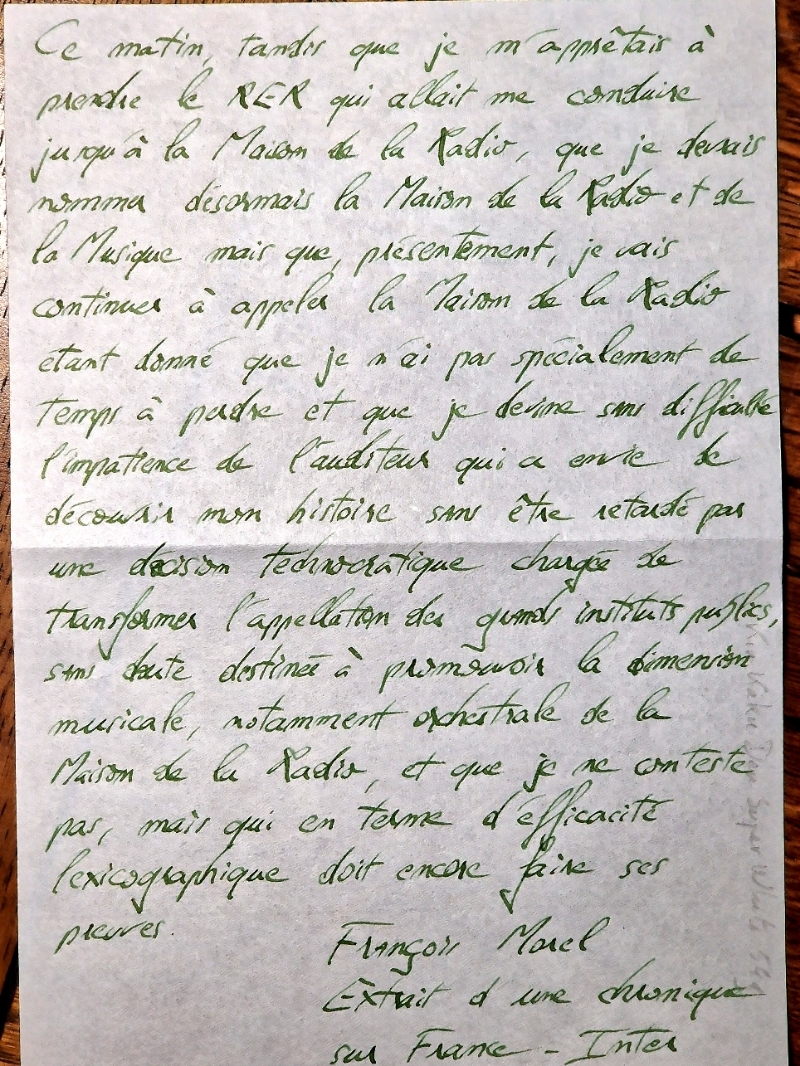 Ce matin, tandis que je m'apprêtais à
prendre le RER qui allait me conduire
jusqu'à la Maison de la Radio, que je devrais
nommer désormais la Maison de la Radio et de
la Musique mais que, présentement, je vais
continuer à appeler la Maison de la Radio
étant donné que je n'ai pas spécialement de
temps à perdre et que je devine sans difficulté
l'impatience de l'auditeur qui a envie de
découvrir mon histoire sans être retardé par
une décision technocratique chargée de
transformer l'appellation des grands instituts publics,
sans doute destinée à promouvoir la dimension
musicale, notamment orchestrale de la
Maison de la Radio, et que je ne conteste
pas, mais qui en terme d'éfficacité
lexicographique doit encore faire ses
preuves.
François Morel
Extrait d'une chronique
sur France-Inter
Super White